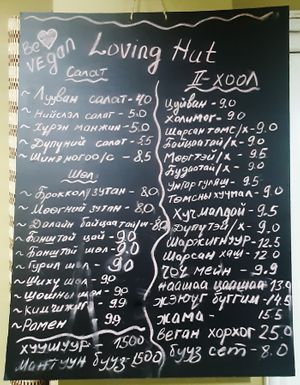 Be
VEGAN
Loving Hut
Салат
~ Лууван салат - 4.0
~ Нийслэл салат - 5.0
~ Хүрэн манжин - 5.0
~ Дүпүний салат - 5.5
~ Шинэ ногоо/с - 8.5
Шөл
~ Броккол/зутан - 8.0
~ Мөөгний зутан - 8.0
~ Далайн байцаатай/ш - 8.0
~ Банштай цай - 9.0
~ Банштай шөл - 9.0
~ Гурил ш 9.0
~ шөл - 9.0
~ Шойны - 9.0
~ Кимчижиг 9.9
~ Рамен 9.9
Хуушуур - 1500
Мантуун бууз - 1500
II - ХООЛ
Цуйван - 9.0
Халимог - 9.0
Шарсан төмс/х - 9.0
Байцаатай/х - 9.0
Мөөгтэй/х - 9.5
Будаатай/х - 9.0
Унгар гуляш - 9.5
Төмсний хуумал - 9.0
Хучмалдой - 9.5
Дүпүтэй/х - 9.0
Шаржигнуур - 12.5
Шарсан хаш - 12.0
Чоу мейн - 9.9
наашаа цаашаа 13.9
жэнюуг буггим - 14.5
жама - 15.5
Веган хорхог 25.0
бууз сет - 8.0